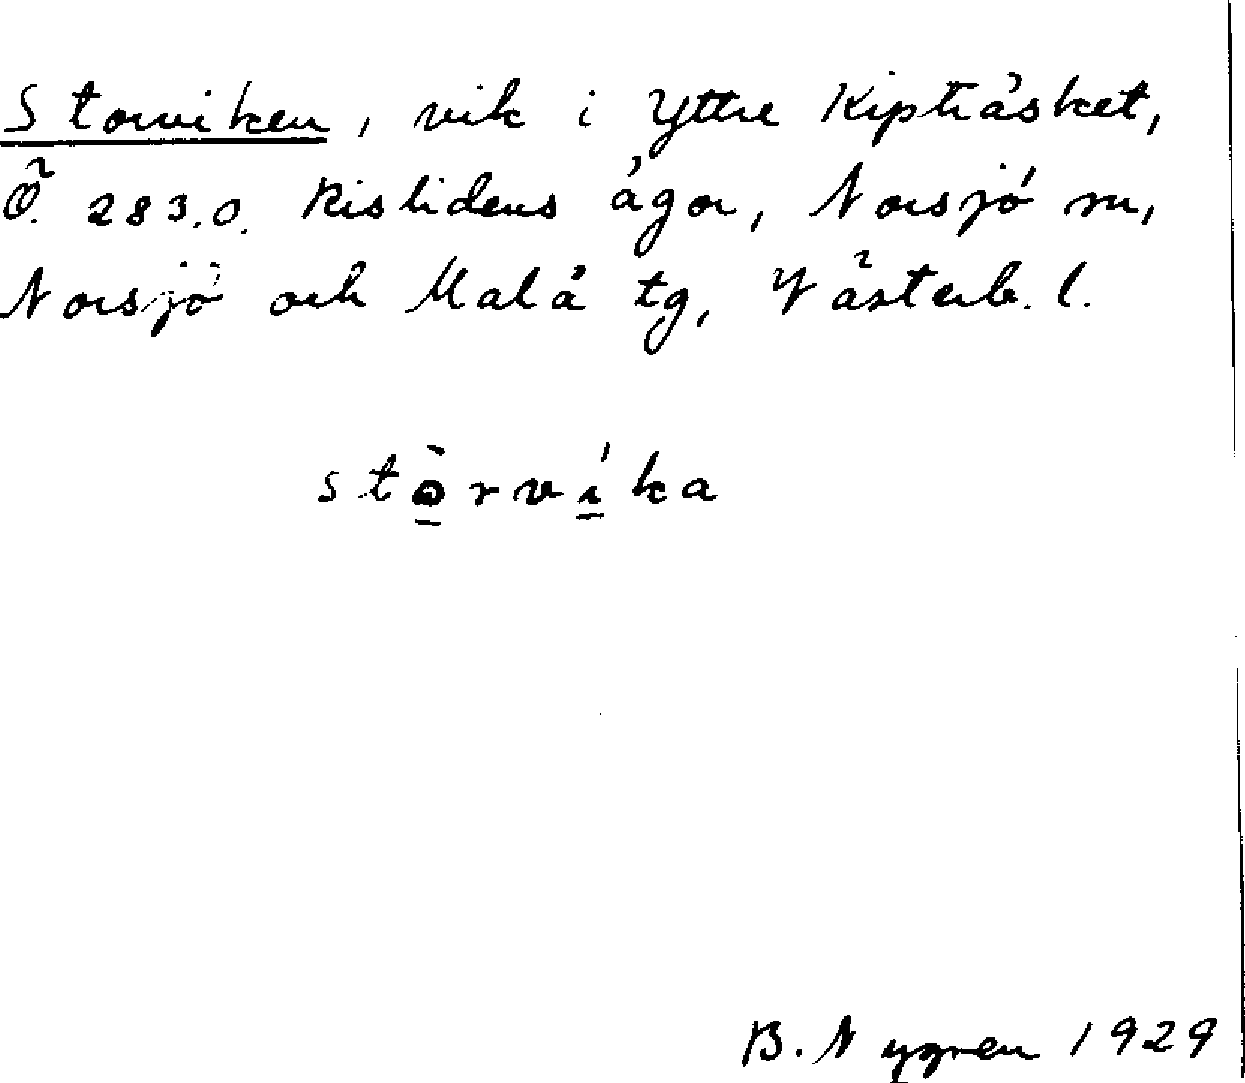 Storviken, vik i Yttre Kipträsket,
Ö. 283.0. Rislidens ägor, Norsjö sn,
Norsjö och Malå tg, Västerb. l.
stò̱rví̱ka
B. Nygren 1929